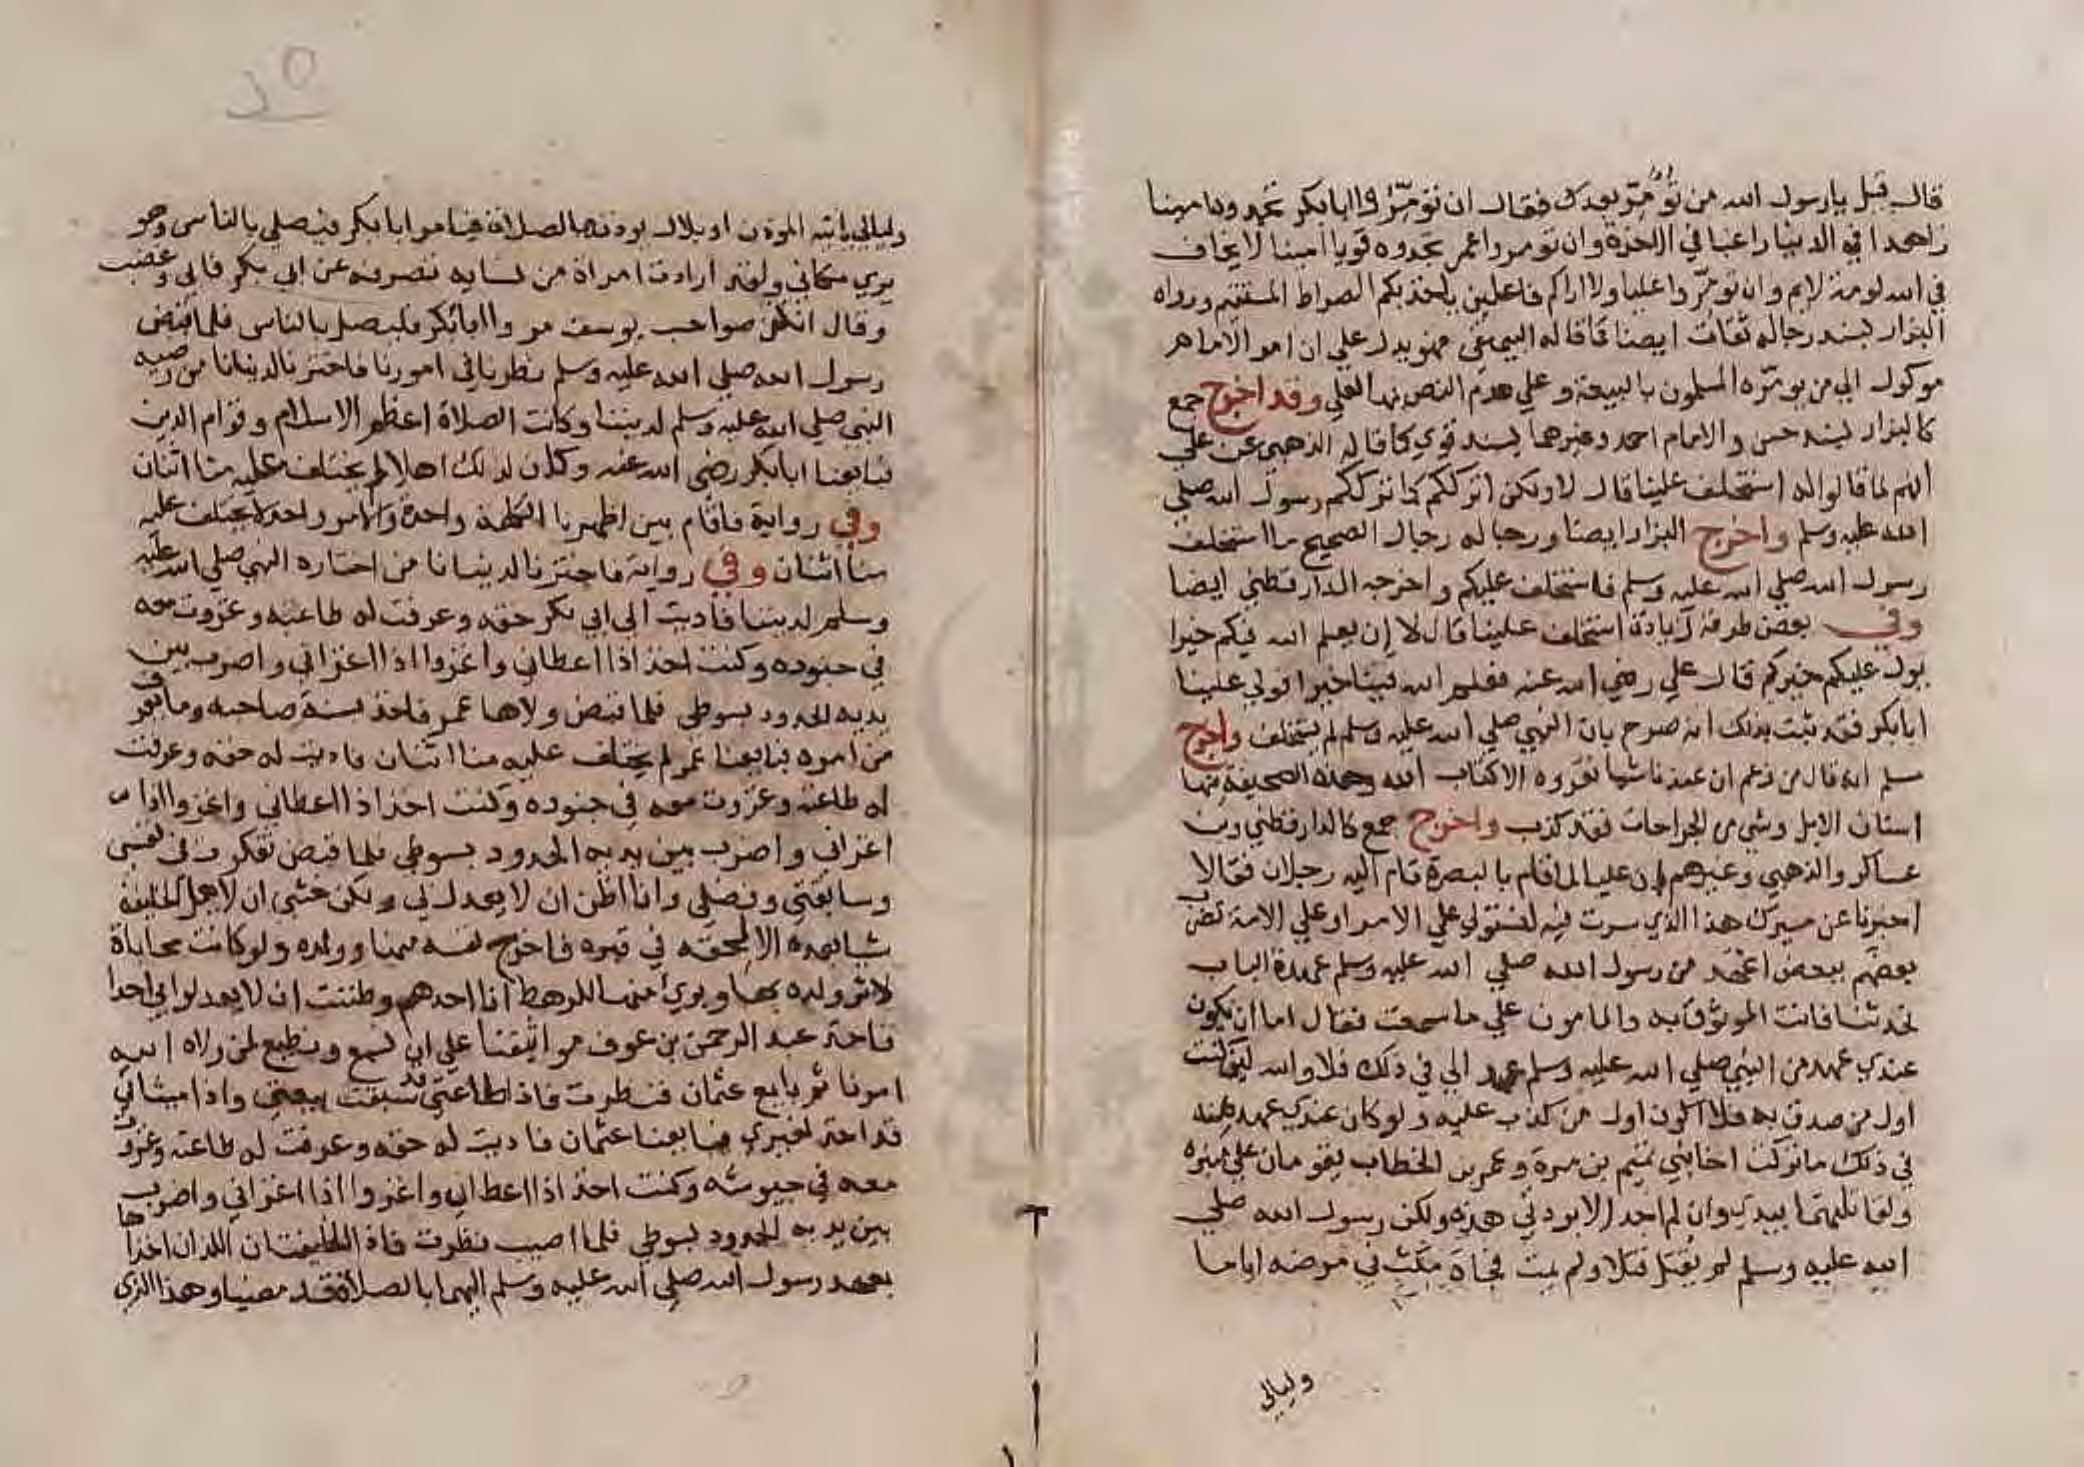 قال قيل يا رسول الله من نؤمر بعدك فقال ان تؤمروا ابا بكر تجدوه امينا
زاهدا في الدنيا راغبا في الاخرة وان تؤمروا عمر تجدوه قويا امينا لا يخاف
في الله لومة لايم وان تؤمروا عليا ولا اراكم فاعلين ياخذ بكم الصراط المستقيم ورواه
البزار بسند رجاله ثقات ايضا كما قاله البيهقي فهو يدل علي ان امر الامام
موكول الي من يؤمره المسلمون بالبيعة وعلي عدم النص بها لعلي وقد اخرج جمع
كالبزار بسند حسن والامام احمد وغيرهما بسند قوي كما قاله الذهبي عن علي
انهم لما قالوا له استخلف علينا قال لا ولكن اترككم كما ترككم رسول الله صلي
الله عليه وسلم واخرج البزار ايضا ورجاله رجال الصحيح ما استخلف
رسول الله صلي الله عليه وسلم فاستخلف عليكم واخرجه الدارقطني ايضا
وفي بعض طرقه زيادة استخلف علينا قال لا ان يعلم الله فيكم خيرا
يول عليكم خيركم قال علي رضي الله عنه فعلم الله فينا خيرا فولي علينا
ابا بكر فقد ثبت بذلك انه صرح بان النبي صلي الله عليه وسلم لم يستخلف واخرج
مسلم انه قال من زعم ان عندنا شيا نقروه الا كتاب الله وهذه الصحيفة فيها
اسنان الابل وشي من الجراحات فقد كذب واخرج جمع كالدارقطني وبن
عساكر والذهبي وغيرهم ان عليا لما قام بالبصرة قام اليه رجلان فقالا
اخبرنا عن مسيرك هذا الذي سرت فيه لتستولي علي الامر او علي الامة تضرب
بعضهم ببعض اعهد من رسول الله صلي الله عليه وسلم عهده اليك
فحدثنا فانت الموثوق به والمامون علي ما سمعت فقال اما ان يكون
عندي عهد من النبي صلي الله عليه وسلم عهد الي في ذلك فلا والله لين كنت
اول من صدق به فلا اكون اول من كذب عليه ولو كان عندي عهد منه
في ذلك ما تركت اخا بني تميم بن مرة وعمر بن الخطاب يقومان علي منبره
ولقاتلتهما بيدي وان لم اجد الا بردتي هذه ولكن رسول الله صلي
الله عليه وسلم لم يقتل قتلا ولم يمت فجاة مكث في مرضه اياما
وليالي
وليالي ياتيه الموذن او بلال يوذنه بالصلاة فيامر ابا بكر فيصلي بالناس وهو
يري مكاني ولقد ارادت امراة من نسايه تصرفه عن ابي بكر فابي وغضب
وقال انتن صواحب يوسف مروا ابا بكر فليصل بالناس فلما قبض
رسول الله صلي الله عليه وسلم نظرنا في امورنا فاخترنا لدنيانا من رضيه
النبي صلي الله عليه وسلم لديننا وكانت الصلاة اعظم الاسلام وقوام الدين
فبايعنا ابا بكر رضي الله عنه وكان لذلك اهلا لم يختلف عليه منا اثنان
وفي رواية فاقام بين اظهرنا الكلمة واحدة والامر واحد لا يختلف عليه
منا اثنان وفي رواية فاخترنا لدنيانا من اختاره النبي صلي الله عليه
وسلم لديننا فاديت الي ابي بكر حقه وعرفت له طاعته وغزوت معه
في جنوده وكنت اخذ اذا اعطاني واغزو اذا اغزاني واضرب بين
يديه الحدود بسوطي فلما قبض ولاها عمر فاخذ بسنة صاحبه وما يعرف
من امره فبايعنا عمر لم يختلف عليه منا اثنان فاديت له حقه وعرفت
له طاعته وغزوت معه في جنوده وكنت اخذ اذا اعطاني واغزوا اذا
اغزاني واضرب بين يديه الحدود بسوطي فلما قبض تفكرت في نفسي
وسابقتي وفضلي وانا اظن ان لا يعدل بي ولكن خشي ان لا يعمل الخليفة
شيا بعده الا لحقه في قبره فاخرج نفسه منها وولده ولو كانت محاباة
لاثر ولده بها وبري منها للرهط انا احدهم وظننت ان لا يعدلوا بي احدا
فاخذ عبد الرحمن بن عوف مواثيقنا علي ان نسمع ونطيع لمن ولاه الله
امرنا ثم بايع عثمان فنظرت فاذا طاعتي قد سبقت بيعتي واذا ميثاقي
قد اخذ لغيري فبايعنا عثمان فاديت له حقه وعرفت له طاعته وغزوت
معه في جيوشه وكنت اخذ اذا اعطاني واغزوا اذا اغزاني واضرب
بين يديه الحدود بسوطي فلما اصيب نظرت فاذا الخليفتان اللذان اخذاها
بعهد رسول الله صلي الله عليه وسلم اليهما بالصلاة قد مضيا وهذا الذي